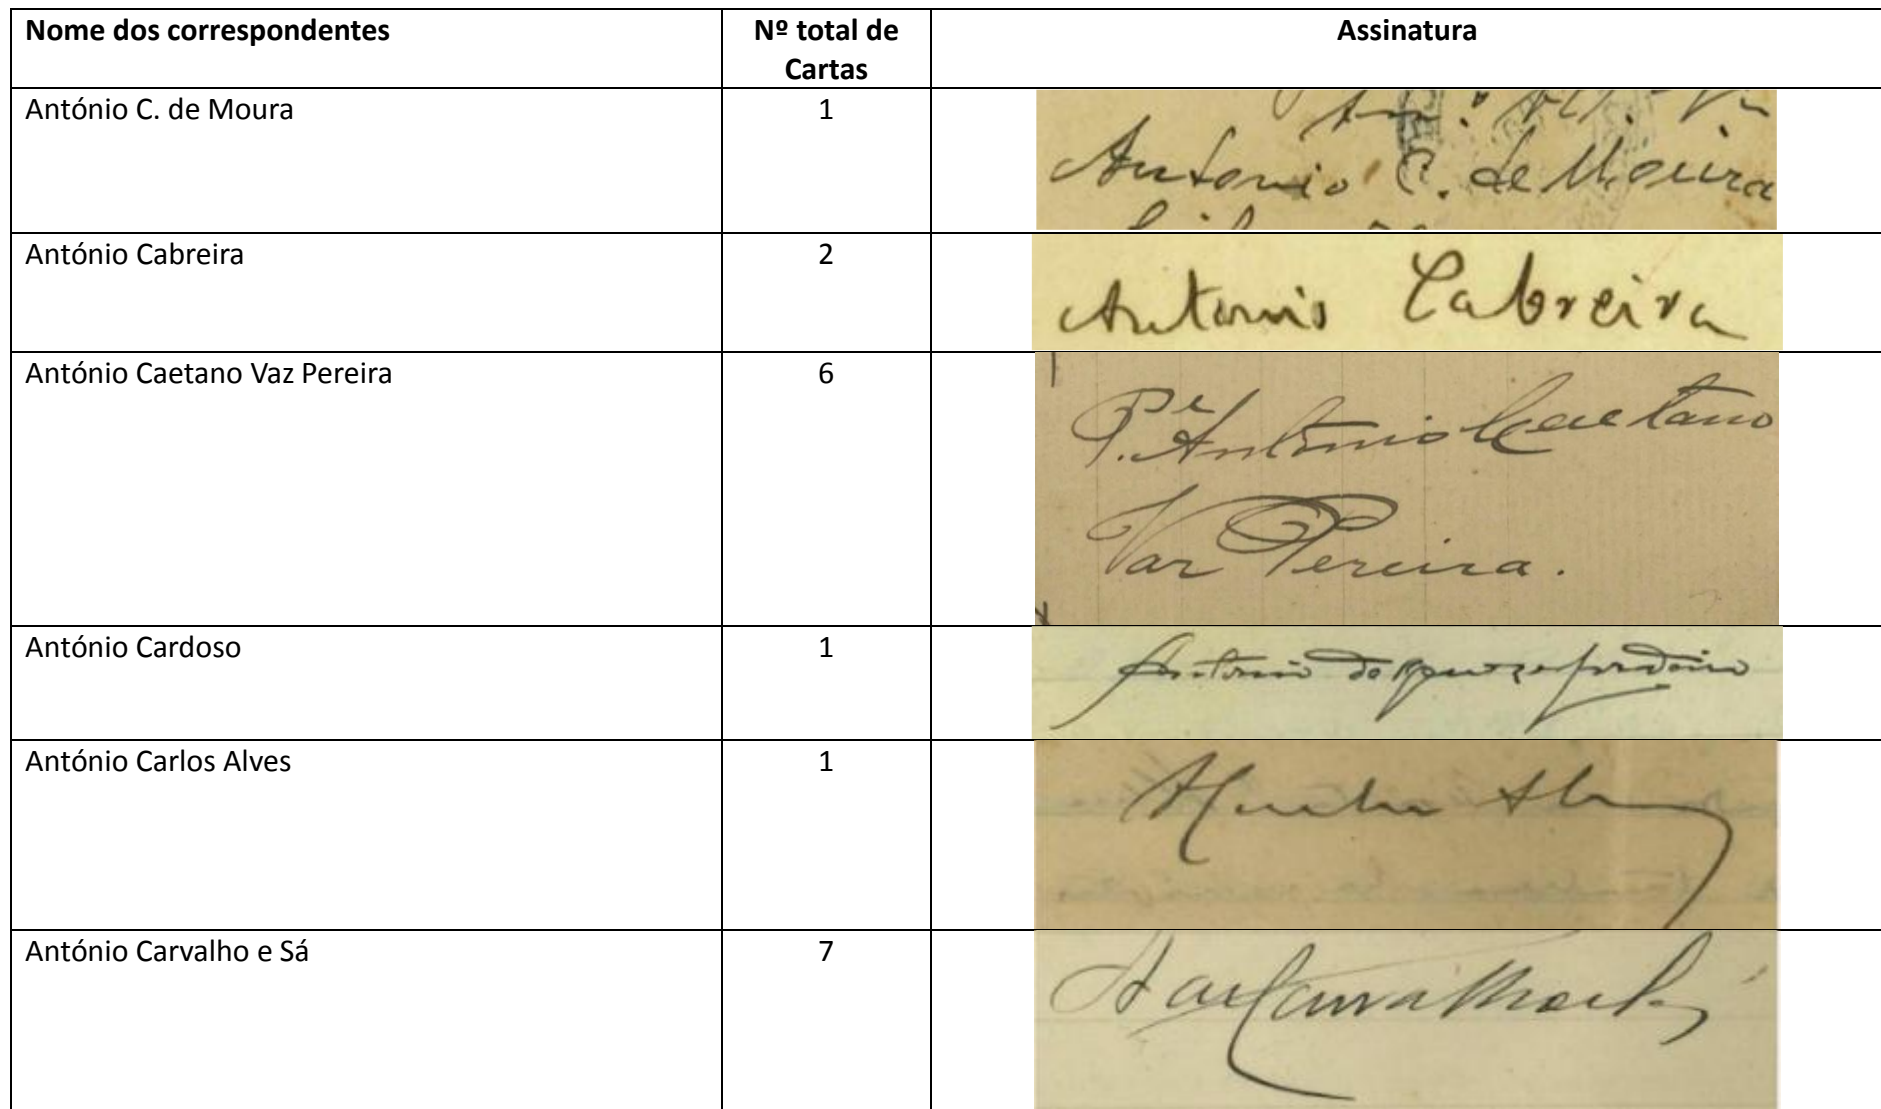 Nome dos correspondentes
Nº total de
Cartas
Assinatura
António C. de Moura
1
Antonio C. de Moura
António Cabreira
2
Antonio Cabreira
António Caetano Vaz Pereira
6
P.e Antonio Caetano
Vaz Pereira.
António Cardoso
1
Antonio de
António Carlos Alves
1
António Carvalho e Sá
7